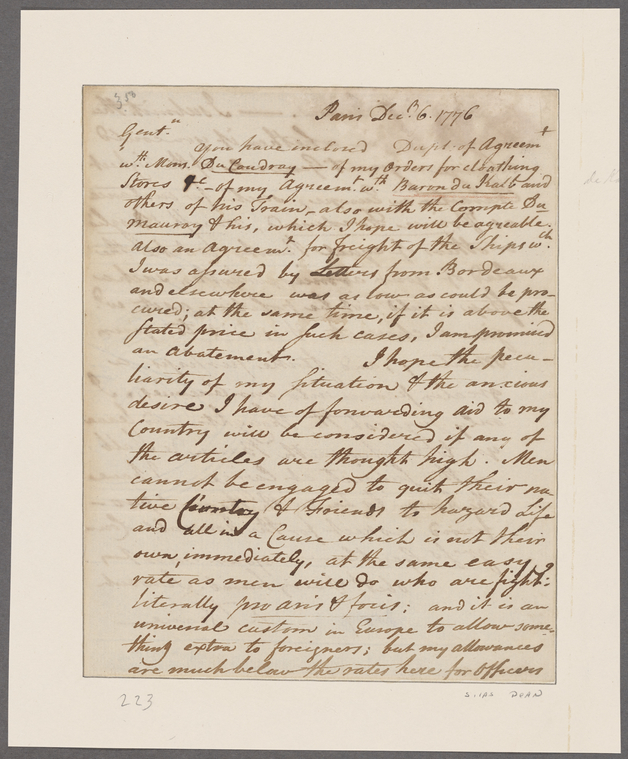 Paris Decr. 6. 1776
Gentn.
You have inclosed Dupt. of Agreemt
wth. Monsr. Du Coudray — of my Orders for cloathing
Stores &c — of my Agreemt. wth. Baron du Kalb and
others of his Train, also with the Compte Du
mauroy & his, which I hope will be agreable.
also an agreemt. for freight of the Ships wch.
I was assured by Letters from Bordeaux
and elsewhere was as low as could be pro-
cured; at the same time, if it is above the
stated price in such cases, I am promised
an abatement. I hope the pecu-
liarity of my Situation & the anxious
desire I have of forwarding aid to my
Country will be considered if any of
the articles are thought high. Men
cannot be engaged to quit their na
tive Country & Friends to hazard Life
and all in a Cause which is not their
own, immediately, at the same easy
rate as men will do who are fightg.
literally pro aris & focis; and it is an
universal custom in Europe to allow some-
thing extra to foreigners; but my allowances
are much below the rates here for Officers
223
SILAS DEAN